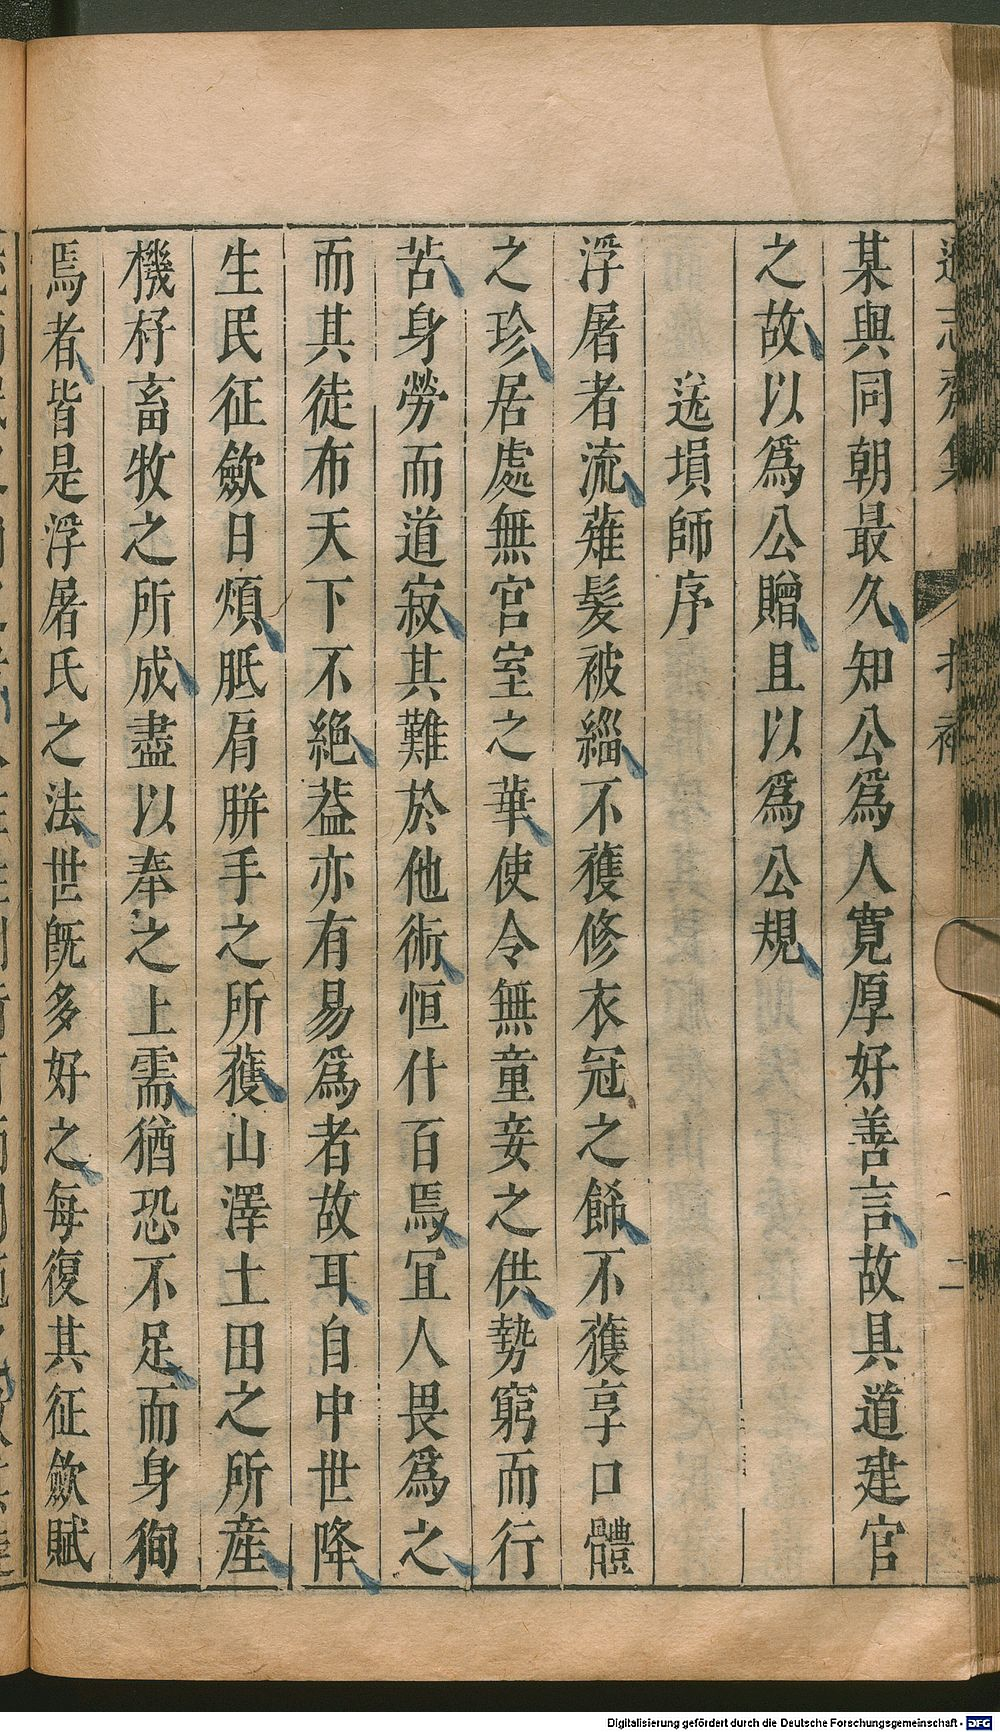 某與同朝最久知公爲人寛厚好善言故具道建官
之故以爲公贈且以爲公規
送塤師序
浮屠者流薙髮被緇不獲修衣冠之餙不獲享口體
之珍居處無官室之華使令無童妾之供勢窮而行
苦身勞而道寂其難於他術恒什百焉冝人畏爲之
而其徒布天下不絕葢亦有易爲者故耳自中世降
生民征歛日煩胝肩胼手之所獲山澤土田之所産
機杼畜牧之所成盡以奉之上需猶恐不足而身徇
焉者皆是浮屠氏之法世旣多好之每復其征歛賦
Digitalisierung gefördert durch die Deutsche Forschungsgemeinschaft - DFG